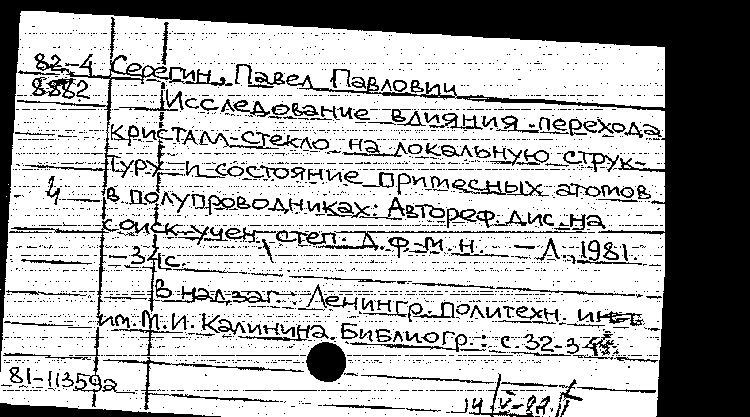 82-4 Серегин, Павел Павлович
8882
Исследование влияния перехода
кристалл-стекло на локальную струк-
туру и состояние примесных атомов
4 в полупроводниках: Автореф. дис. на
соиск. учен. степ. д.ф-м.н. — Л., 1981.
— 34с.
В надзаг.: Ленингр. политехн. ин-т
им. М.И. Калинина. Библиогр.: с. 32-34
81-113592